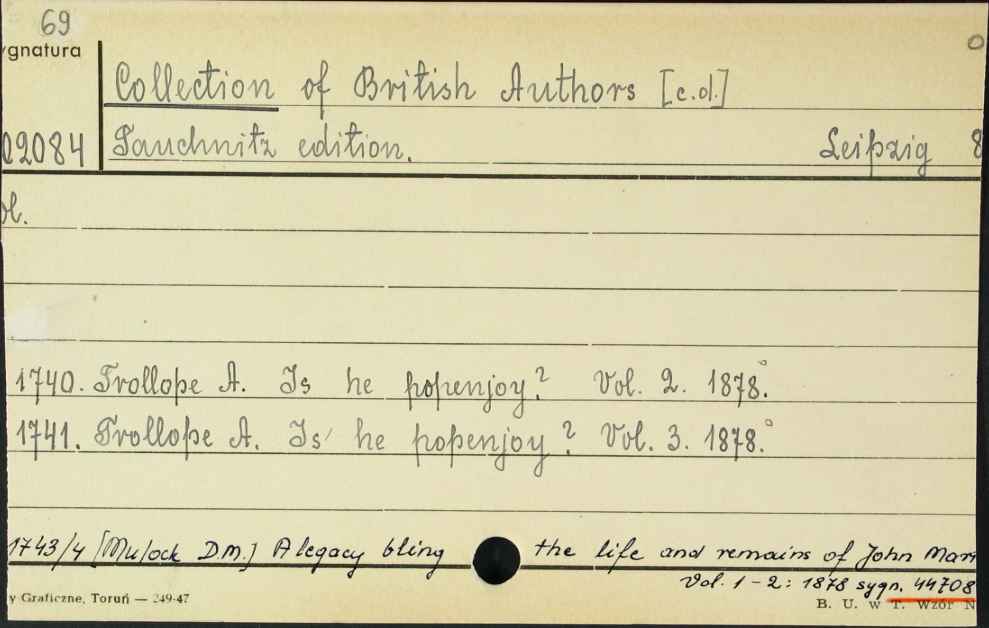 69
ygnatura
Collection of British Authors [c.d.]
02084 Tauchnitz edition. Leipzig 8
ol.
1740. Trollope A. Is he popenjoy? Vol. 2. 1878.
1741. Trollope A. Is he popenjoy? Vol. 3. 1878.
1743/4 [Mulock D.M.] A legacy bling the life and remains of John Mart
Vol. 1-2: 1878 sygn. 44708
y Graficzne, Toruń — 249-47 B. U. w T. Wzór N